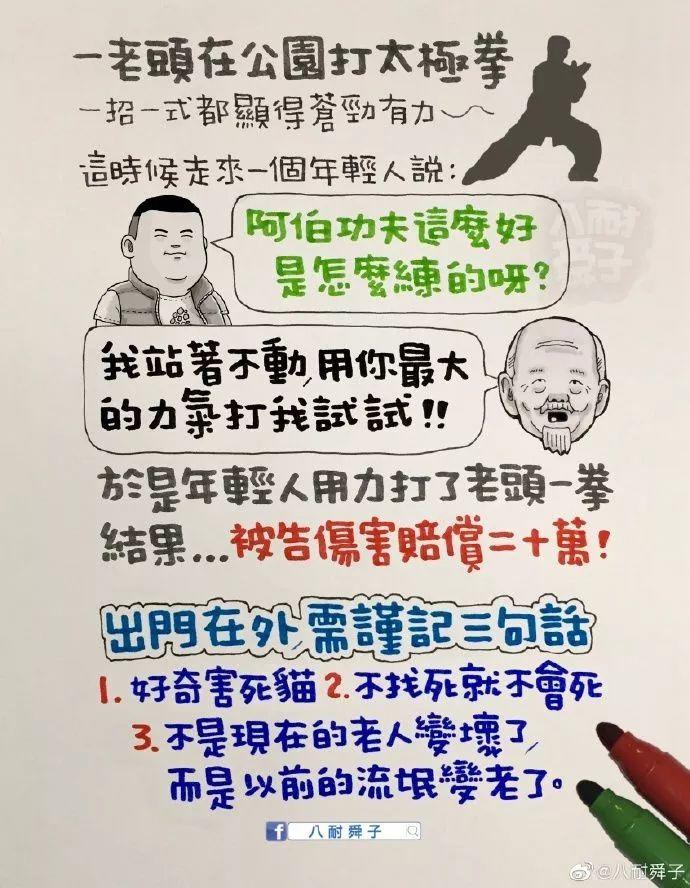 一老頭在公園打太極拳
一招一式都顯得蒼勁有力～
這時候走來一個年輕人說：
八耐
舜子
阿伯功夫這麼好
是怎麼練的呀?
我站著不動,用你最大
的力氣打我試試!!
於是年輕人用力打了老頭一拳
結果...被告傷害賠償二十萬!
出門在外,需謹記三句話
1. 好奇害死貓 2. 不找死就不會死
3. 不是現在的老人變壞了,
而是以前的流氓變老了。
f 八耐舜子
@八耐舜子